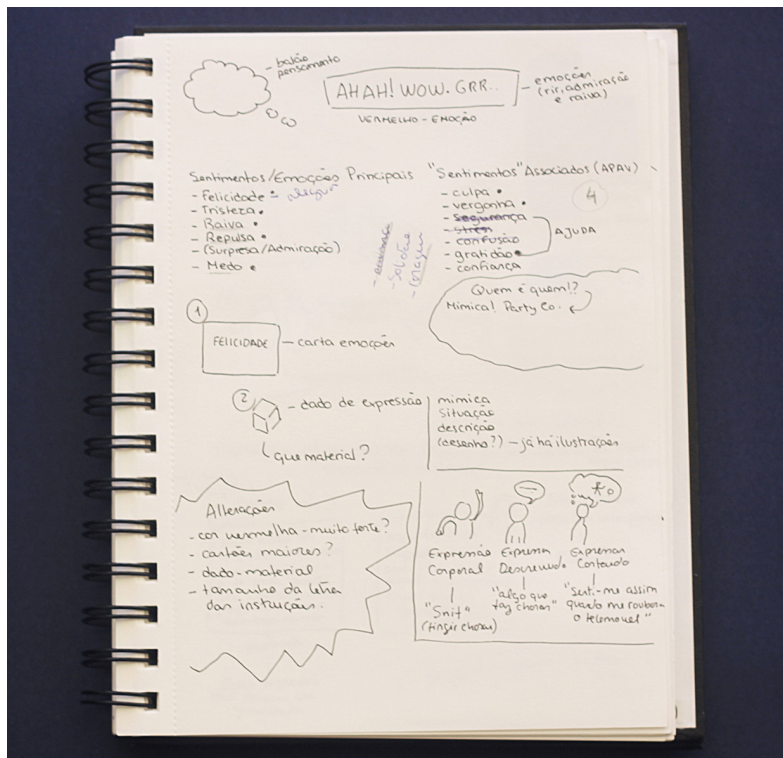 - balão
pensamento
AHAH! WOW. GRR..
- emoções
(rir, admiração
e raiva)
VERMELHO - EMOÇÃO
Sentimentos/Emoções Principais
- Felicidade
- Tristeza
- Raiva
- Repulsa
- (Surpresa/Admiração)
- Medo
"Sentimentos" Associados (APAV)
- culpa
- vergonha
- segurança
- stress
- confusão
- gratidão
- confiança
AJUDA
4
Quem é quem!?
Mimica! Party Co.
1
FELICIDADE
- carta emoções
2
- dado de expressão
que material?
mimica
situação
descrição
(desenho?) - já há ilustrações
Alterações
- cor vermelha - muito forte?
- cartões maiores?
- dado - material
- tamanho da letra
das instruções.
Expressão
Corporal
"Snif"
(fingir chorar)
Expressar
Descrevendo
"algo que
faz chorar"
Expressar
Contando
"Senti-me assim
quando me roubaram
o telemovel"